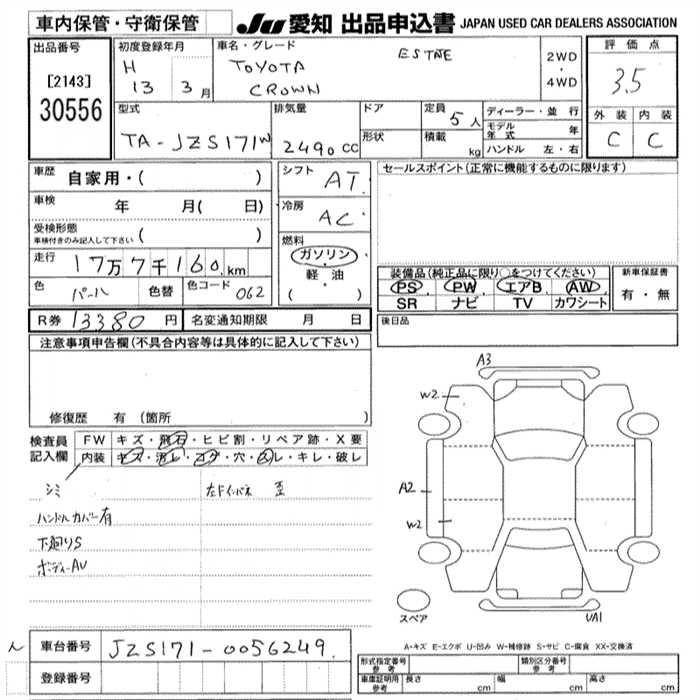 車内保管・守衛保管
JU 愛知 出品申込書 JAPAN USED CAR DEALERS ASSOCIATION
出品番号
[2143]
30556
初度登録年月
H 13 3月
車名・グレード
TOYOTA
CROWN
ESTATE
2WD
・
4WD
評価点
3.5
外装 内装
C C
型式
TA-JZS171W
排気量
2490cc
ドア
形状
定員 5人
積載 kg
ディーラー・並行
モデル年式 年
ハンドル 左・右
車歴 自家用・( )
車検 年 月( 日)
受検形態
車検付きのみ記入して下さい ( )
走行 17万7千160km
色 パール 色替 色コード 062
シフト AT
冷房 AC
燃料
ガソリン
軽・油
( )
セールスポイント(正常に機能するものに限ります)
装備品(純正品に限り○をつけてください)
PS PW エアB AW
SR ナビ TV カワシート
新車保証書
有・無
R券 13380円 名変通知期限 月 日
後日品
注意事項申告欄(不具合内容等は具体的に記入して下さい)
修復歴 有(箇所 )
検査員
記入欄
FW キズ・飛石・ヒビ割・リペア跡・X要
内装 キズ・汚レ・コゲ・穴・スレ・キレ・破レ
シミ 左ドインパネ 歪
ハンドルカバー有
下廻りS
ボディーAU
A3
W2
A2
W2
スペア
UA1
A-キズ E-エクボ U-凹み W-補修跡 S-サビ C-腐食 XX-交換済
ん
車台番号 JZS171-0056249
登録番号
形式指定番号
参考
類別区分番号
参考
車庫証明用
参考
長さ cm 幅 cm 高さ cm